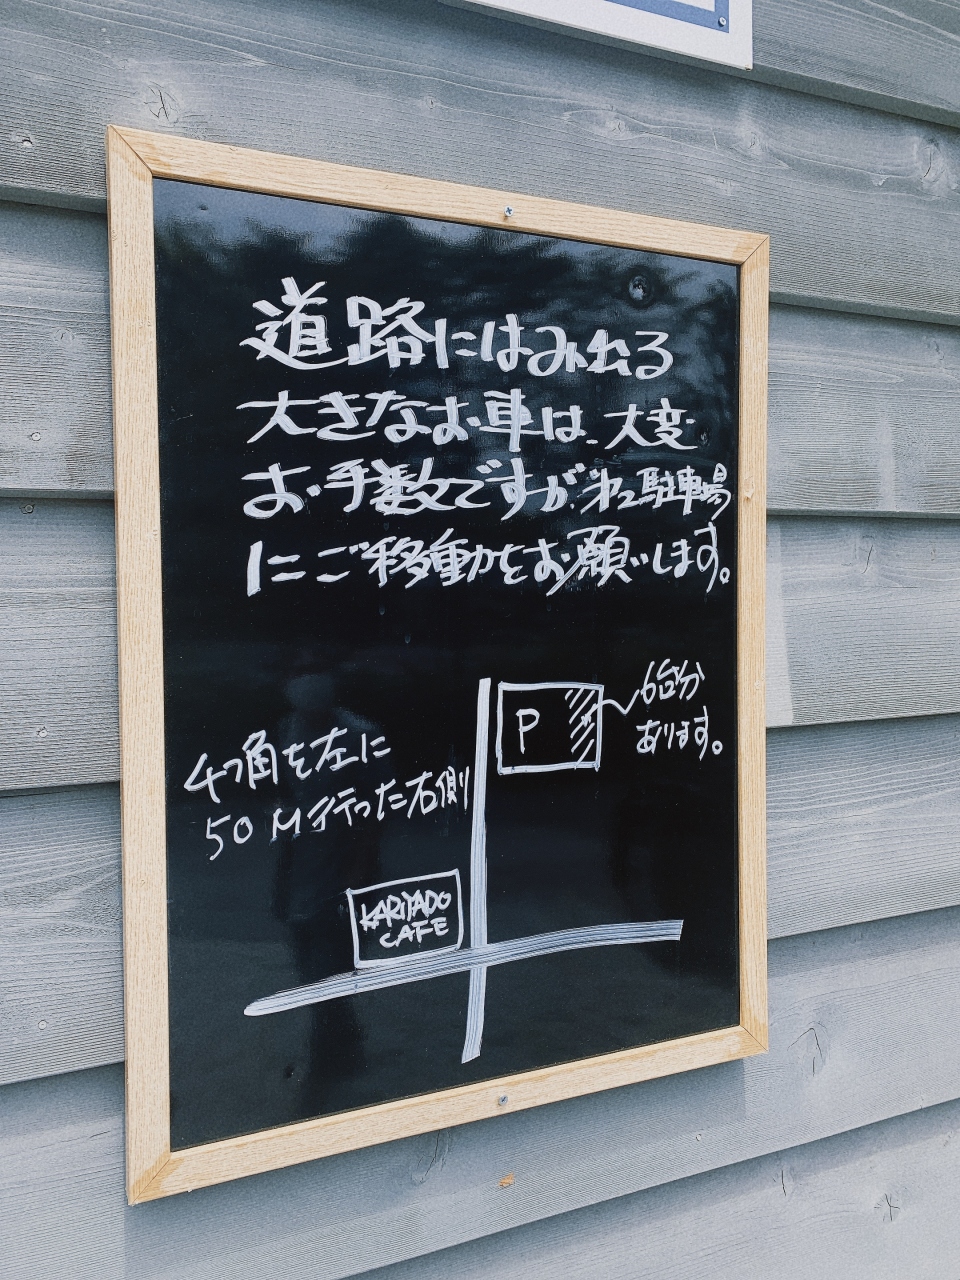 道路にはみ出る
大きなお車は、大変
お手数ですが、第2駐車場
にご移動かをお願いします。
P
6台分
あります。
4つ角を左に
50M行った右側
KARIYADO
CAFE